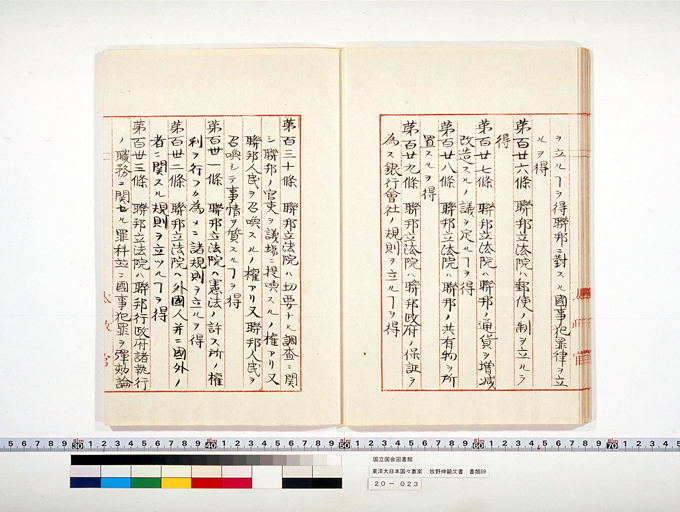 ヲ立ルヿヲ得聯邦ニ對スル國事犯罪律ヲ立
ルヲ得
第百廿六條 聯邦立法院ハ郵便ノ制ヲ立ルヲ
得
第百廿七條 聯邦立法院ハ聯邦ノ通貨ヲ增減
改造スルノ議ヲ定ルヿヲ得
第百廿八條 聯邦立法院ハ聯邦ノ共有物ヲ所
置スルヲ得
第百廿九條 聯邦立法院ハ聯邦政府ノ保証ヲ
為ス銀行會社ノ規則ヲ立ルヿヲ得
第百三十條 聯邦立法院ハ切要ナル調査ニ関
シ聯邦ノ官吏ヲ議場ニ提喚スルノ權アリ又
聯邦人民ヲ召喚スルノ權アリ又聯邦人民ヲ
召喚シテ事情ヲ質スルヿヲ得
第百卅一條 聯邦立法院ハ憲法ノ許ス所ノ權
利ヲ行フ為メニ諸規則ヲ立ルヲ得
第百卅二條 聯邦立法院ハ外國人并ニ國外ノ
者ニ関スル規則ヲ立ツルヿヲ得
第百卅三條 聯邦立法院ハ聯邦行政府諸執行
ノ職務ニ関セル罪科並ニ國事犯罪ヲ彈劾論
太政官
国立国会図書館
東洋大日本国々憲案 牧野伸顕文書 書類69
20-023